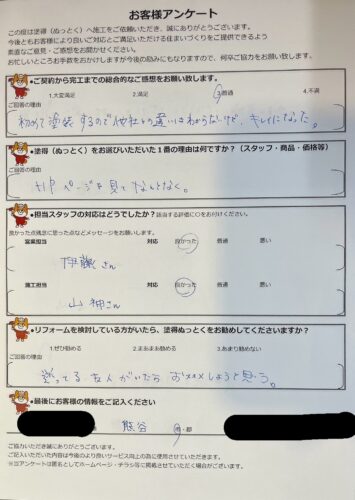 お客様アンケート
この度は塗得（ぬっとく）へ施工をご依頼いただき、誠にありがとうございます。
今後ともお客様により良いご対応とご満足いただける住まいづくりをご提供できるよう
素直なご意見・ご感想をお聞かせください。
お忙しいところお手数をおかけしますが今後の励みにもなりますので、何卒ご協力をお願い致します。
●ご契約から完工までの総合的なご感想をお願い致します。
1.大変満足 2.満足 3.普通 4.不満
ご回答の理由
初めて塗装するので他社との違いはわからないけど、キレイになった。
●塗得（ぬっとく）をお選びいただいた１番の理由は何ですか？（スタッフ・商品・価格等）
ご回答の理由
HPページを見てなんとなく。
●担当スタッフの対応はどうでしたか？該当する評価に○をお付けください。
良かった点残念に思った点などメッセージをお願いします。
営業担当 対応 良かった 普通 悪い
伊藤さん
施工担当 対応 良かった 普通 悪い
山神さん
●リフォームを検討している方がいたら、塗得ぬっとくをお勧めしてくださいますか？
1.ぜひ勧める 2.まあまあ勧める 3.あまり勧めない
ご回答の理由
迷ってる友人がいたらおススメしようと思う。
●最後にお客様の情報をご記入ください
熊谷 市・郡
ご協力いただき誠にありがとうございます。
ご記入いただいた内容は今後のより良いサービス向上の為に使用させていただきます。
※当アンケートは匿名としてホームページ・チラシ等に掲載させていただく場合がございます。